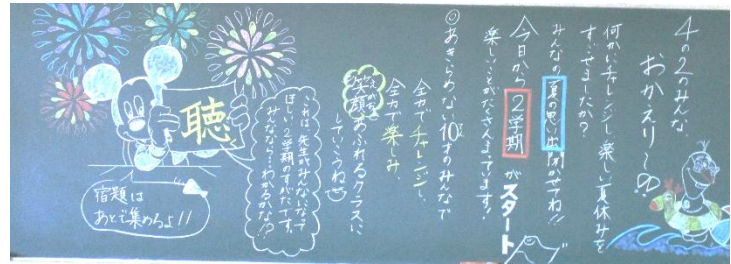 4の2のみんな、
おかえり〜
何かにチャレンジし、楽しい夏休みを
すごせましたか？
みんなの夏の思い出聞かせてね!!
今日から2学期がスタート
楽しいことがたくさんまっています！
あきらめない10才のみんなで
全力でチャレンジし、
全力で楽しみ、
笑顔あふれるクラスに
していこうね
これは、先生がみんなになって
ほしい、2学期のすがたです。
みんななら…わかるかな!?
聴
宿題は
あとで集めるよ!!